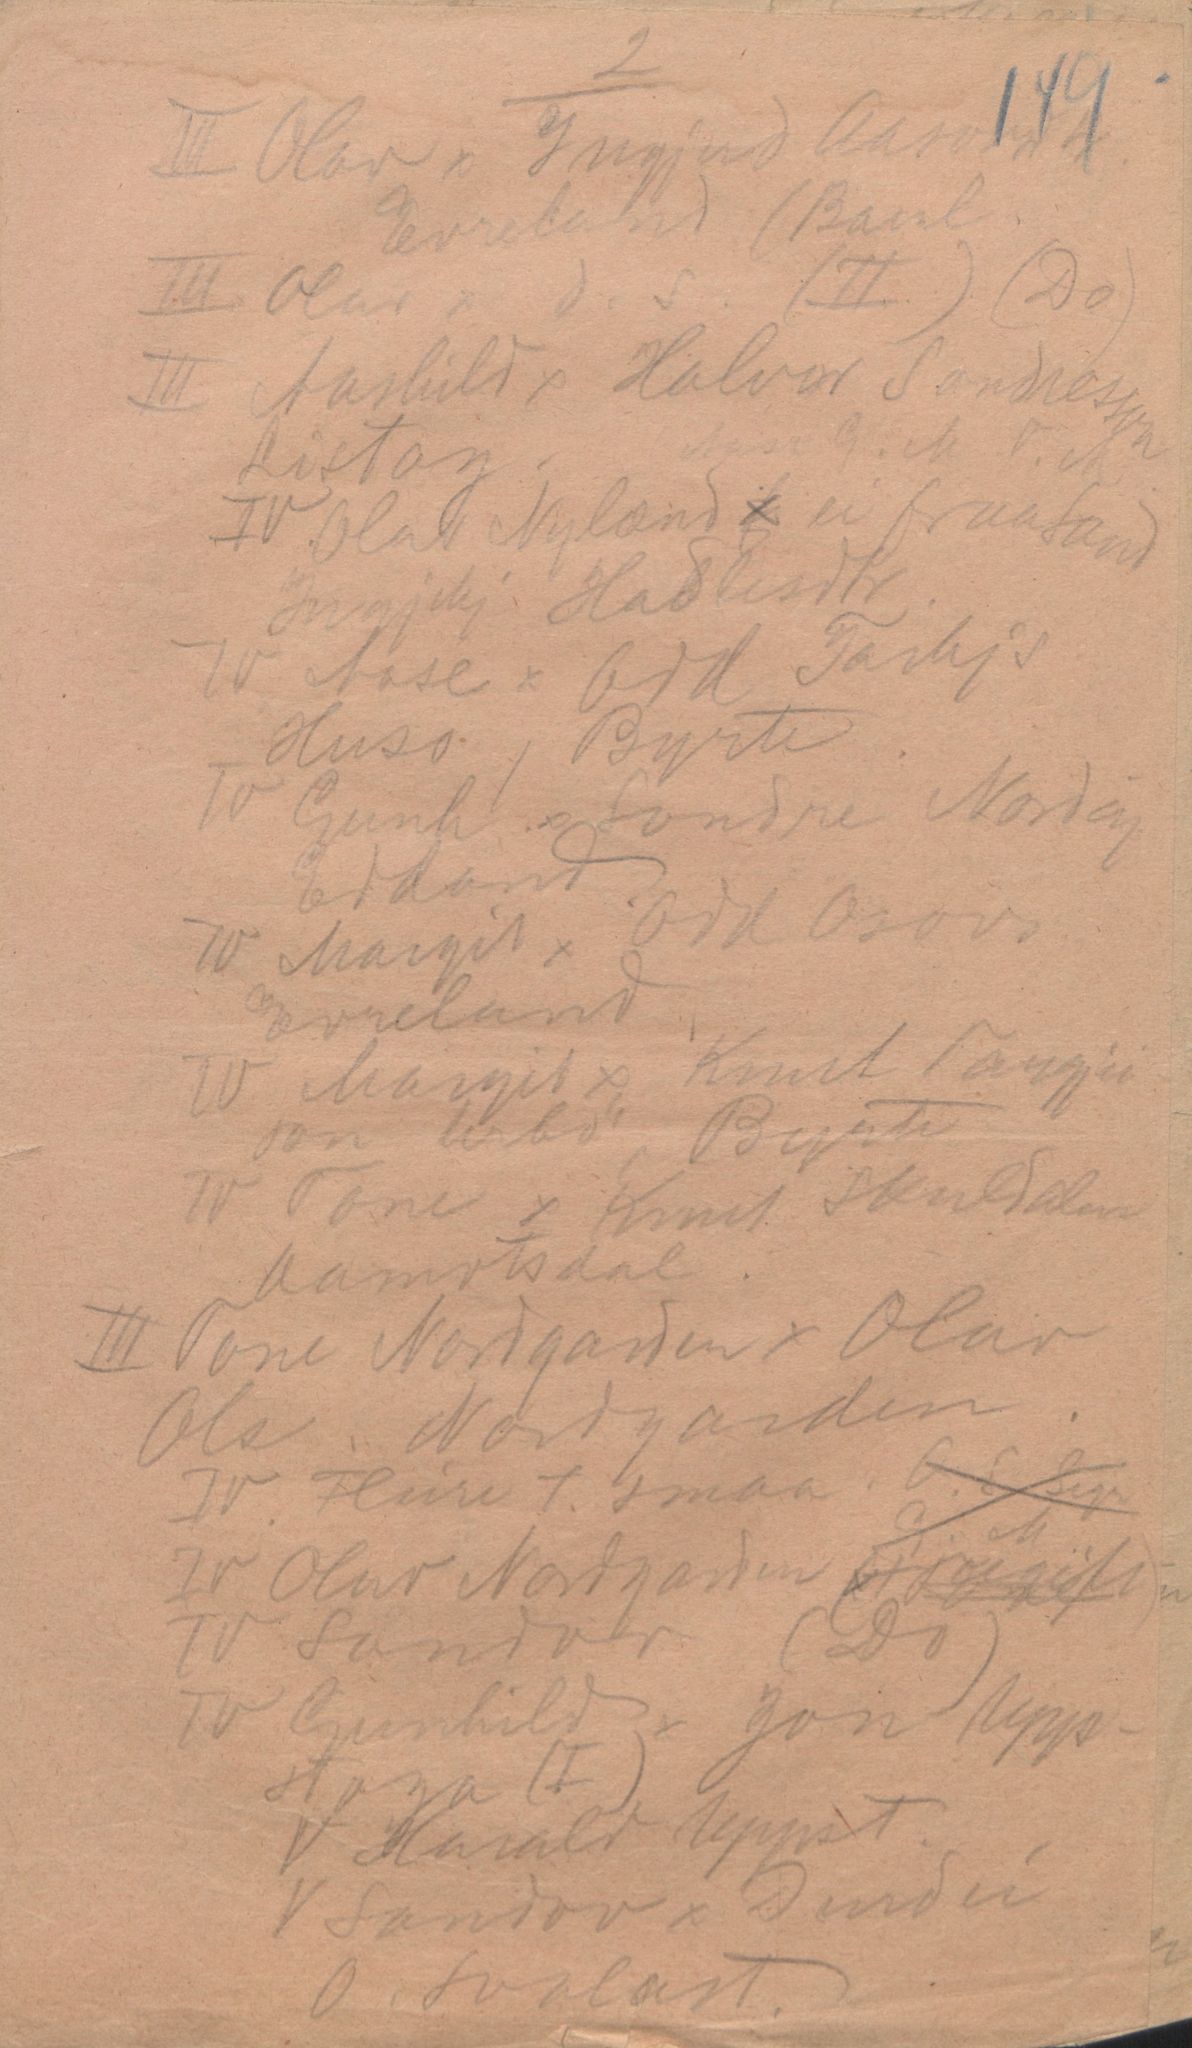 2
149
III Olav x Ingjerd Aasovsd.
Evreland (Baml.
III Olav x d. s. (II) (Do)
III Aashild x Halvor Sondresson
Listøy.
IV Olav Nylænd x ei fraa Sand
Hadlesdtr.
IV Aase x Odd Tarkjs
Huso, Byrte.
IV Gunh. x Sondre Nordig
Edland
IV Margit x Odd Osovs
Evreland
IV Margit x Knut Taugjei
son Urbø, Byrte
IV Tone x Knut Skuldalen
Aamotsdal.
III Tone Nordgarden x Olav
Ols. Nordgarden.
IV. T. smaa.
IV Olav Nordgarden
IV Sondov (Do)
IV Gunhild x Jon Upp-
støga (I)
V Harald Uppst.
V Sondov x Durdei
O. Svalast.